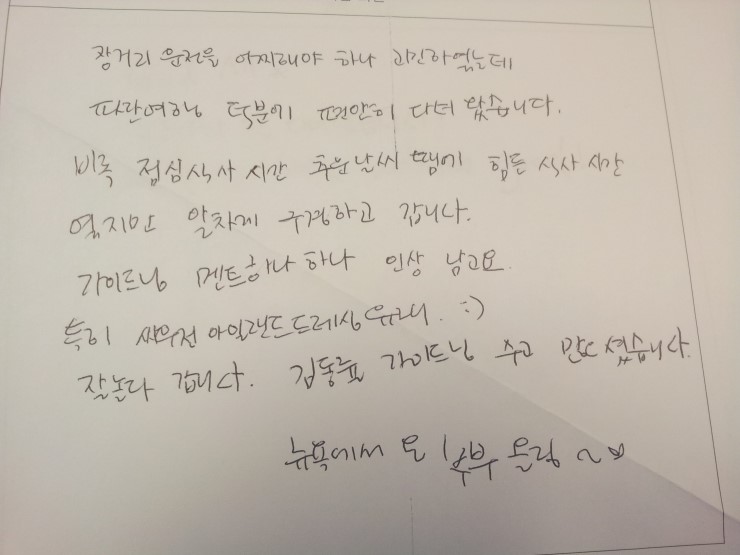 장거리 운전을 어찌해야 하나 고민하였는데
파란여행 덕분에 편안히 다녀 왔습니다.
비록 점심식사 시간 추운날씨 땜에 힘든 식사 시간
였지만 알차게 구경하고 갑니다.
가이드님 멘트하나 하나 인상 남고요.
특히 싸우전 아일랜드 드레싱 유래. :)
잘놀다 갑니다. 가이드님 수고 많으셨습니다.
뉴욕에서 온 부부 올림 ~♡